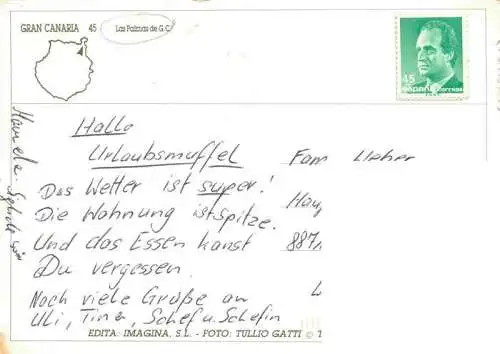 GRAN CANARIA 45 Las Palmas de G.C.
45
España correos
Hallo
Urlaubsmuffel
Das Wetter ist super!
Die Wohnung ist spitze.
Und das Essen kanst
Du vergessen.
Noch viele Grüße an
Uli, Tina, Schef u. Schefin
Fam
887
EDITA: IMAGINA, S.L. - FOTO: TULLIO GATTI ©